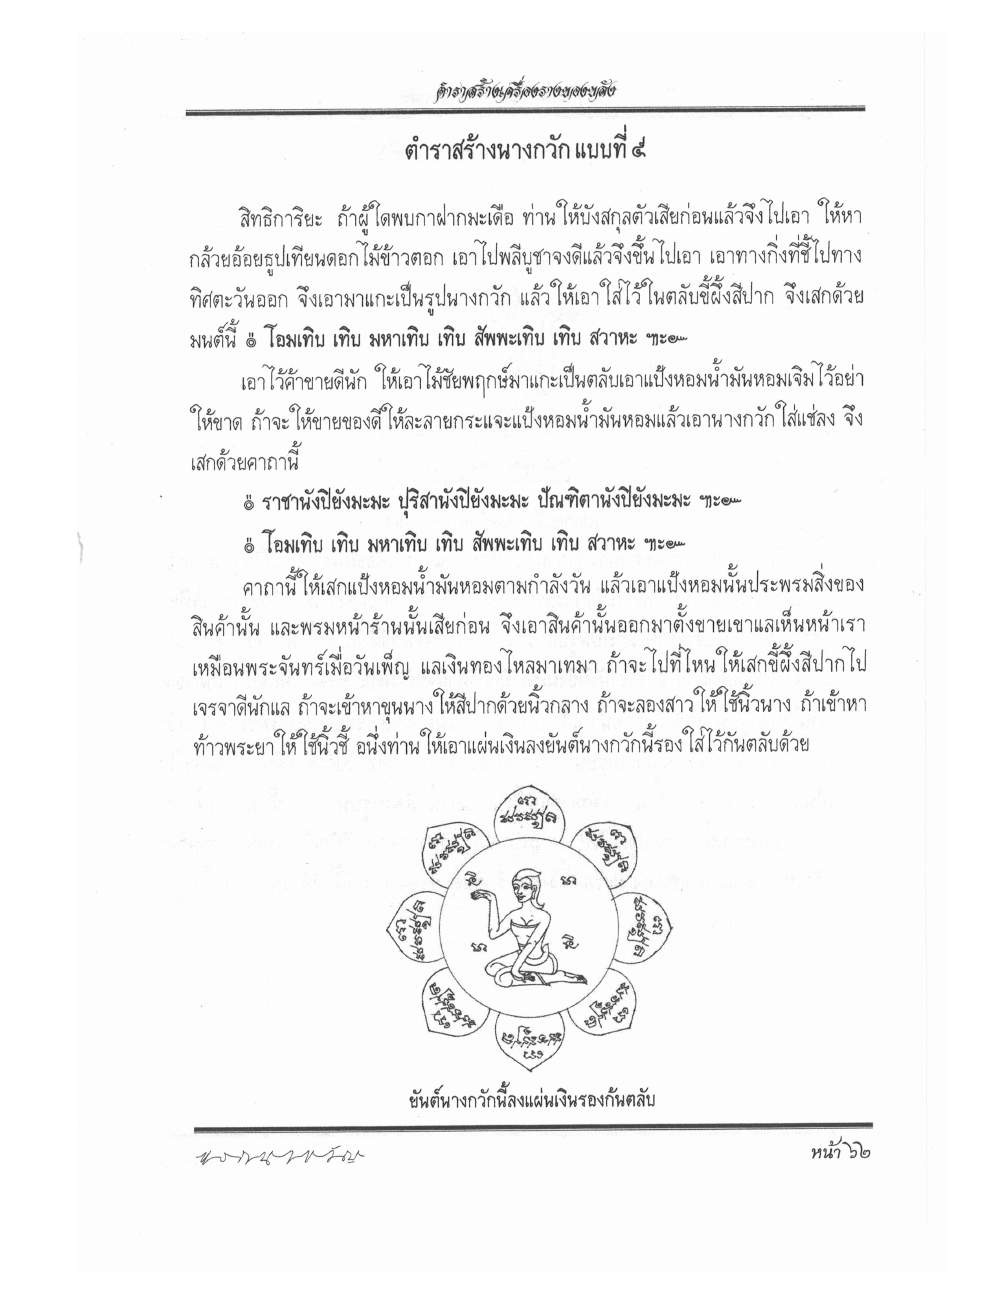 ตำราสร้างเครื่องรางของขลัง
ตำราสร้างนางกวัก แบบที่ ๕
สิทธิการิยะ ถ้าผู้ใดพบกาฝากมะเดือ ท่านให้บังสกุลตัวเสียก่อนแล้วจึงไปเอา ให้หา
กล้วยอ้อยธูปเทียนดอกไม้ข้าวตอก เอาไปพลีบูชาจงดีแล้วจึงขึ้นไปเอา เอาทางกิ่งที่ชี้ไปทาง
ทิศตะวันออก จึงเอามาแกะเป็นรูปนางกวัก แล้วให้เอาใส่ไว้ในตลับขี้ผึ้งสีปาก จึงเสกด้วย
มนต์นี้ ๏ โอมเทิบ เทิบ มหาเทิบ เทิบ สัพพะเทิบ เทิบ สวาหะ ฯะ๛
เอาไว้ค้าขายดีนัก ให้เอาไม้ชัยพฤกษ์มาแกะเป็นตลับเอาแป้งหอมน้ำมันหอมเจิมไว้อย่า
ให้ขาด ถ้าจะให้ขายของดีให้ละลายกระแจะแป้งหอมน้ำมันหอมแล้วเอานางกวักใส่แช่ลง จึง
เสกด้วยคาถานี้
๏ ราชานังปิยังมะมะ ปุริสานังปิยังมะมะ ปัณฑิตานังปิยังมะมะ ฯะ๛
๏ โอมเทิบ เทิบ มหาเทิบ เทิบ สัพพะเทิบ เทิบ สวาหะ ฯะ๛
คาถานี้ให้เสกแป้งหอมน้ำมันหอมตามกำลังวัน แล้วเอาแป้งหอมนั้นประพรมสิ่งของ
สินค้านั้น และพรมหน้าร้านนั้นเสียก่อน จึงเอาสินค้านั้นออกมาตั้งขายเขาแลเห็นหน้าเรา
เหมือนพระจันทร์เมื่อวันเพ็ญ แลเงินทองไหลมาเทมา ถ้าจะไปที่ไหนให้เสกขี้ผึ้งสีปากไป
เจรจาดีนักแล ถ้าจะเข้าหาขุนนางให้สีปากด้วยนิ้วกลาง ถ้าจะลองสาวให้ใช้นิ้วนาง ถ้าเข้าหา
ท้าวพระยาให้ใช้นิ้วชี้ อนึ่งท่านให้เอาแผ่นเงินลงยันต์นางกวักนี้รองใส่ไว้กันตลับด้วย
ยันต์นางกวักนี้ลงแผ่นเงินรองก้นตลับ
หน้า ๖๒